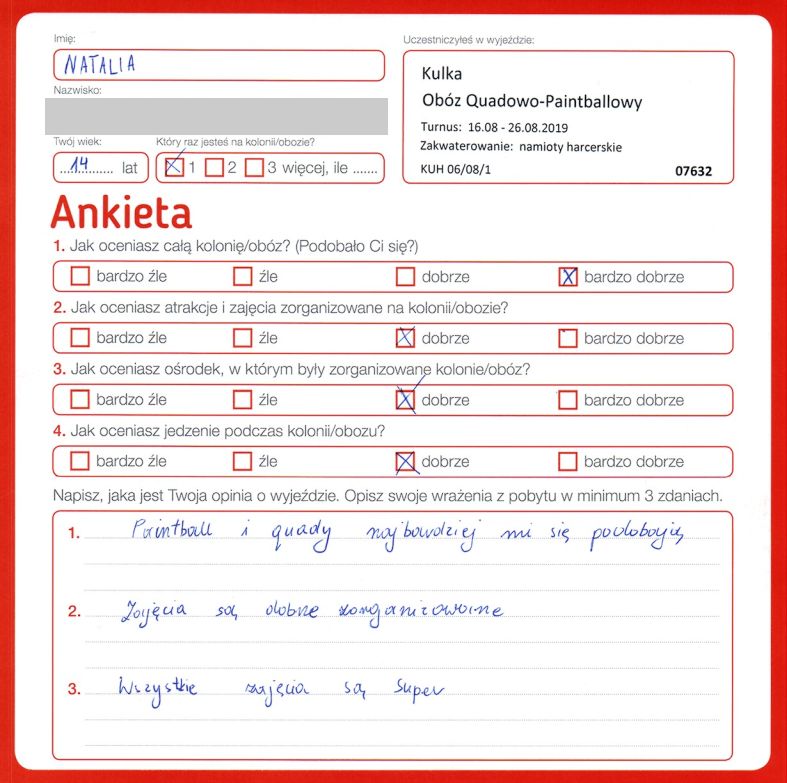 Imię:
NATALIA
Nazwisko:
Twój wiek:
14 lat
Który raz jesteś na kolonii/obozie?
1 2 3 więcej, ile .......
Uczestniczyłeś w wyjeździe:
Kulka
Obóz Quadowo-Paintballowy
Turnus: 16.08 - 26.08.2019
Zakwaterowanie: namioty harcerskie
KUH 06/08/1 07632
Ankieta
1. Jak oceniasz całą kolonię/obóz? (Podobało Ci się?)
bardzo źle źle dobrze bardzo dobrze
2. Jak oceniasz atrakcje i zajęcia zorganizowane na kolonii/obozie?
bardzo źle źle dobrze bardzo dobrze
3. Jak oceniasz ośrodek, w którym były zorganizowane kolonie/obóz?
bardzo źle źle dobrze bardzo dobrze
4. Jak oceniasz jedzenie podczas kolonii/obozu?
bardzo źle źle dobrze bardzo dobrze
Napisz, jaka jest Twoja opinia o wyjeździe. Opisz swoje wrażenia z pobytu w minimum 3 zdaniach.
1. Paintball i quady najbardziej mi się podobają
2. Zajęcia są dobrze zorganizowane
3. Wszystkie zajęcia są super